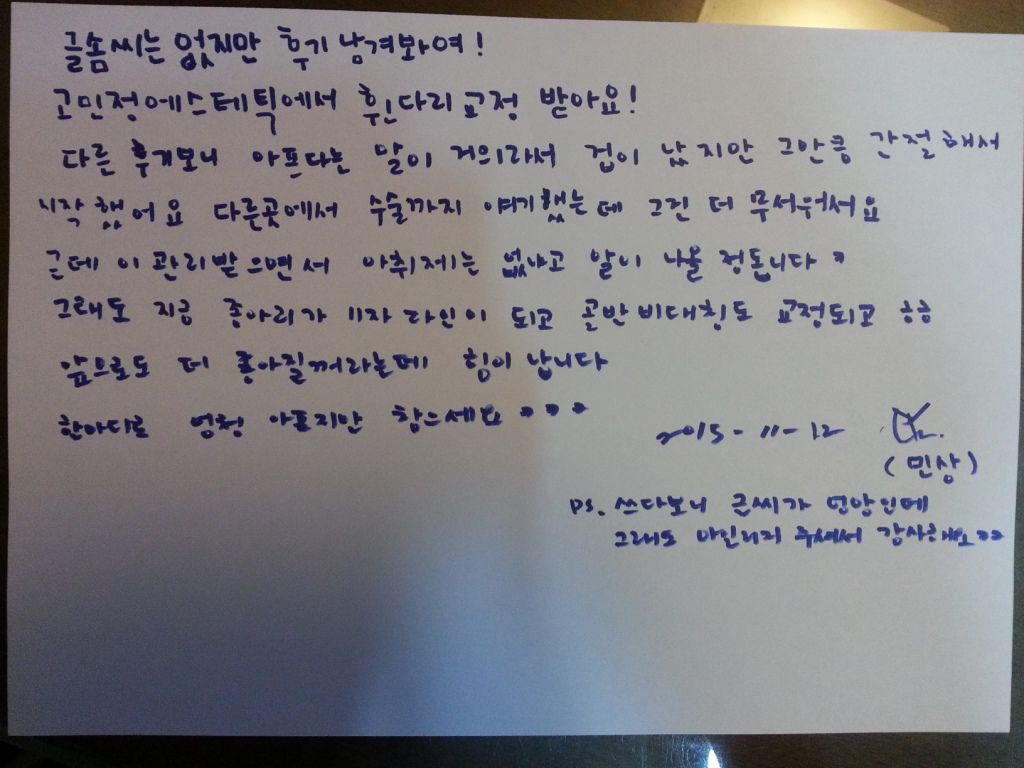 글솜씨는 없지만 후기 남겨봐여!
고민정에스테틱에서 휜다리교정 받아요!
다른 후기보니 아프다는 말이 거의라서 겁이 났지만 그만큼 간절해서
시작했어요 다른곳에서 수술까지 얘기했는데 그긴 더 무서워서요
근데 이 관리받으면서 마취제는 없냐고 말이 나올 정돕니다 ^
그래도 지금 종아리가 11자 라인이 되고 골반비대칭도 교정되고 ㅎㅎ
앞으로도 더 좋아질꺼라는데 힘이 납니다
한마디로 엄청 아프지만 참으세요 ^^^
2015-11-12
(민상)
PS. 쓰다보니 글씨가 엉망인데
그래도 마일리지 주셔서 감사해요 ^^